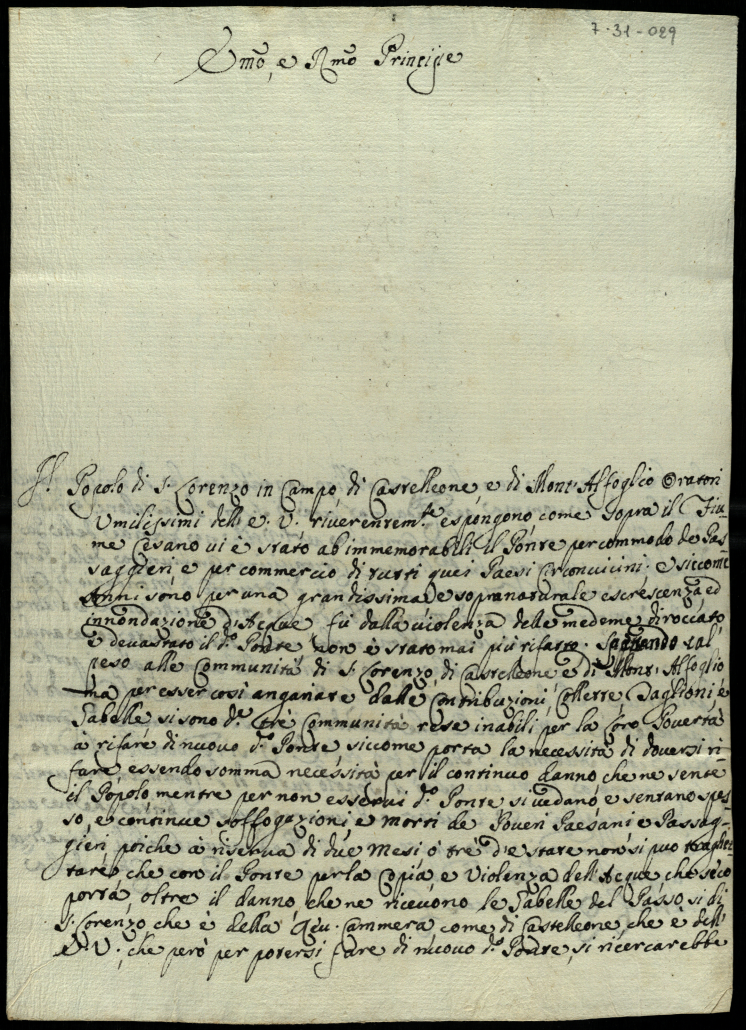 7-31-029
Emo, e Rmo Principe
Il Popolo di S. Lorenzo in Campo, di Castelleone, e di Mont'Alfoglio Oratori
Umilissimi dell'E. V. riverentemte espongono come sopra il Fiu-
me Cesano vi è stato ab immemorabili il Ponte per commodo de Pas-
saggieri e per commercio di tutti quei Paesi Circonvicini, e siccome
Anni sono per una grandissima e sopranaturale escrescenza ed
innondazione d'Acque fù dalla violenza delle medeme diroccato,
e devastato il do Ponte non è stato mai più rifatto. tal
peso alle Communità di S. Lorenzo, di Castelleone e di Mont'Alfoglio
ma per esser così angariate dalle Contribuzioni, Collette, Taglioni e
Gabelle si sono de tre Communità rese inabili per la loro Povertà
à rifare di nuovo do Ponte siccome porta la necessità di doversi ri-
fare essendo somma necessità per il continuo danno che ne sente
il Popolo mentre per non esservi do Ponte si vedano e sentano spes-
so, e continue soffogazioni e morti de Poveri Paesani e Passag-
gieri poiche à riserva di due Mesi ò tre d'estate non si può traghet-
tare che con il Ponte per la Copia e Violenza dell'Acque che seco
porta oltre il danno che ne ricevono le Gabelle del Passo, si di
S. Lorenzo che è della Cammera come di Castelleone che è dell'
E. V. che però per potersi fare di nuovo do Ponte, si ricercarebbe